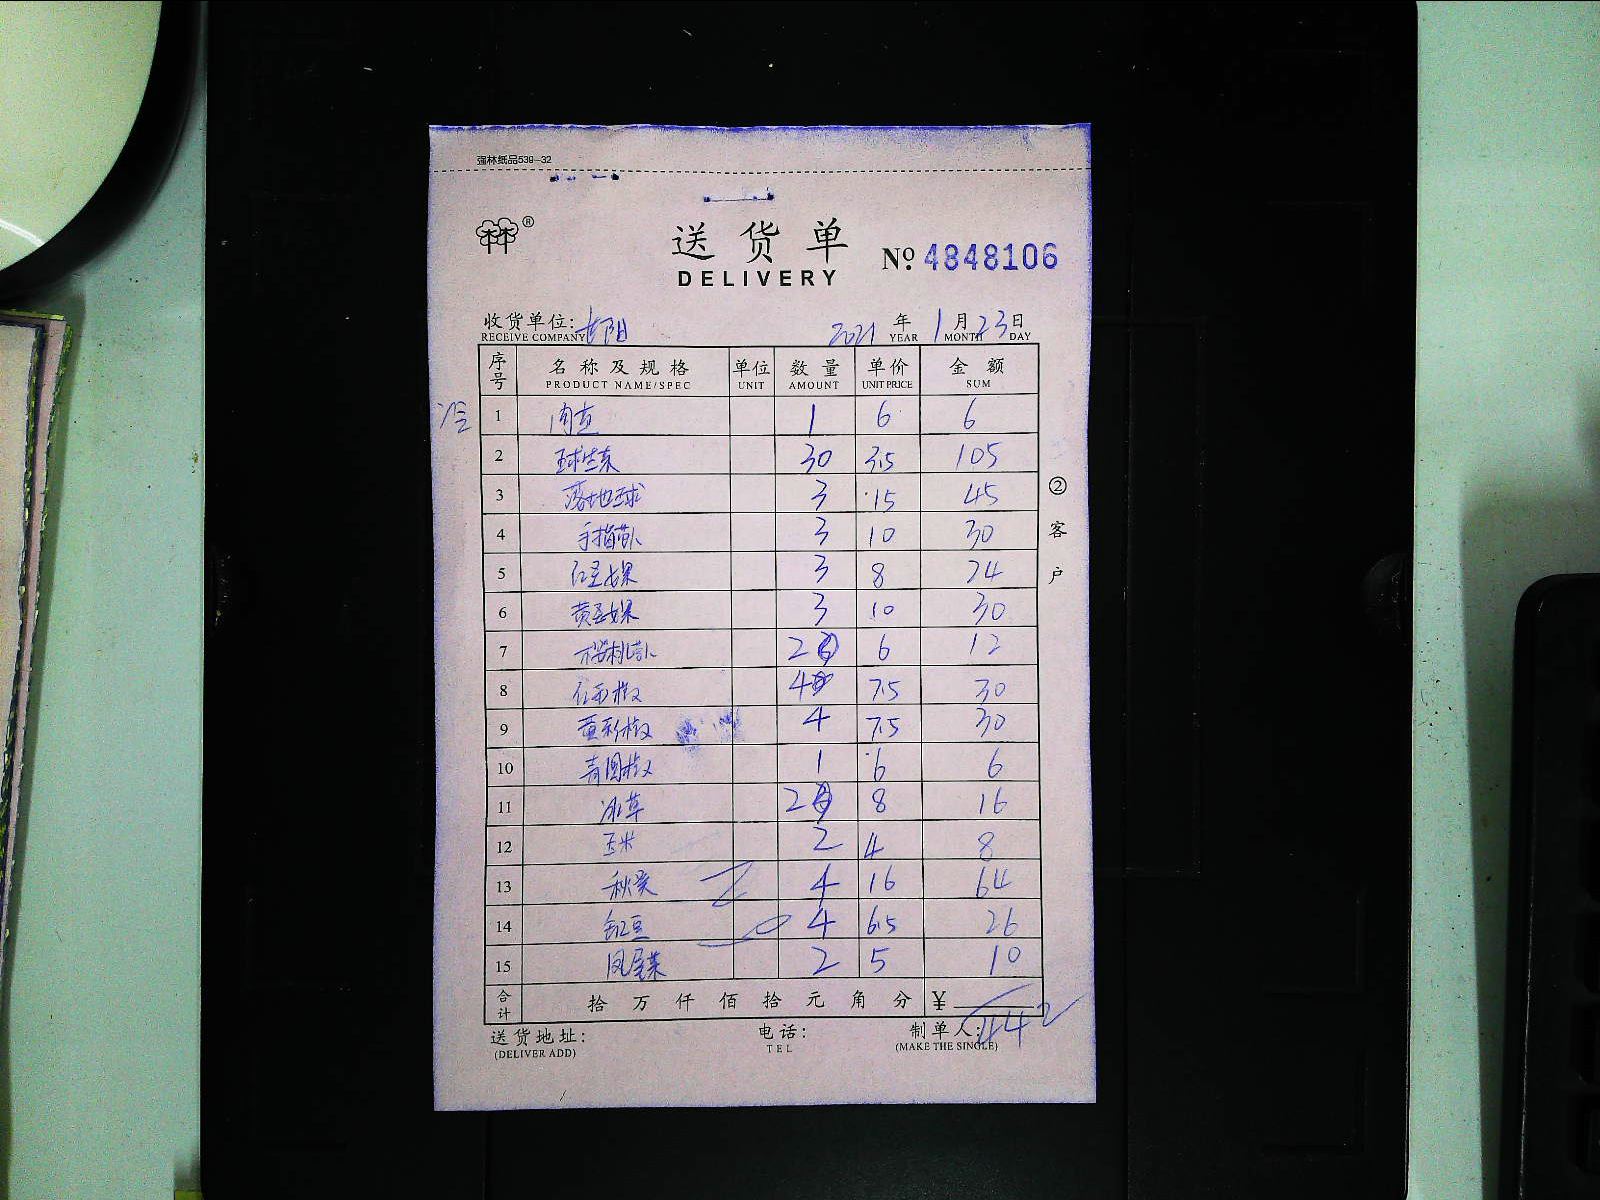 强林纸品539-32
林®
送货单
DELIVERY
№ 4848106
收货单位: 长阳 2021年 1月23日
RECEIVE COMPANY YEAR MONTH DAY
序号 名称及规格 单位 数量 单价 金额
PRODUCT NAME/SPEC UNIT AMOUNT UNIT PRICE SUM
1 1 6 6
2 球生菜 30 3.5 105
3 落地球 3 15 45
4 手指萝卜 3 10 30
5 红圣女果 3 8 24
6 黄圣女果 3 10 30
7 樱桃萝卜 2 6 12
8 红彩椒 4 7.5 30
9 黄彩椒 4 7.5 30
10 青圆椒 1 6 6
11 冰草 2 8 16
12 玉米 2 4 8
13 秋葵 4 16 64
14 豇豆 4 6.5 26
15 凤尾菜 2 5 10
合计 拾万仟佰拾元角分 ¥ 442
送货地址: 电话: 制单人:
(DELIVER ADD) TEL (MAKE THE SINGLE)
②客户